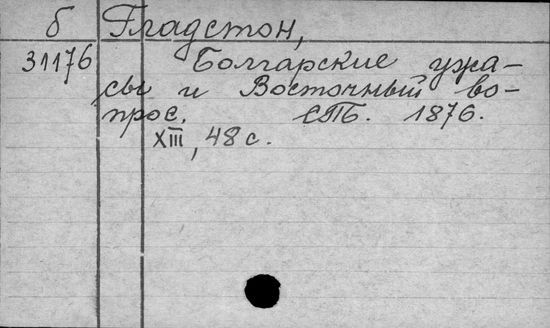 б Гладстон,
31176 Болгарские ужа-
сы и Восточный во-
прос. СПБ. 1876.
XIII, 48 с.